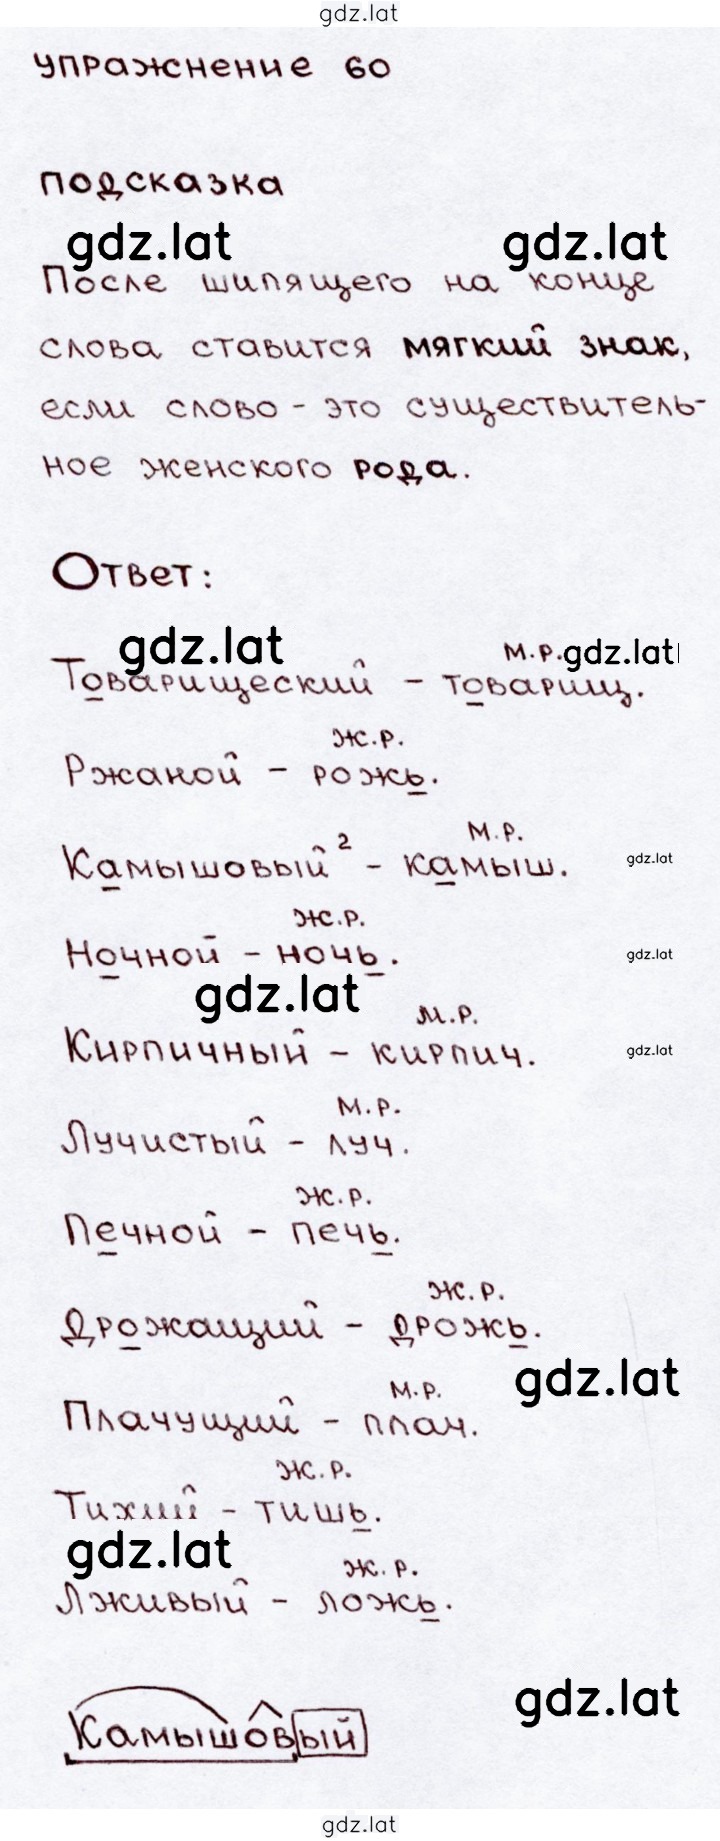 gdz.lat
упражнение 60
подсказка
gdz.lat gdz.lat
После шипящего на конце
слова ставится мягкий знак,
если слово - это существитель-
ное женского рода.
Ответ:
gdz.lat м.р. gdz.lat
Товарищеский - товарищ.
ж.р.
Ржаной - рожь.
м.р.
Камышовый² - камыш. gdz.lat
ж.р.
Ночной - ночь. gdz.lat
gdz.lat
м.р.
Кирпичный - кирпич. gdz.lat
м.р.
Лучистый - луч.
ж.р.
Печной - печь.
ж.р.
Дрожащий - дрожь.
gdz.lat
м.р.
Плачущий - плач.
ж.р.
Тихий - тишь.
gdz.lat
ж.р.
Лживый - ложь.
gdz.lat
Камышовый
gdz.lat